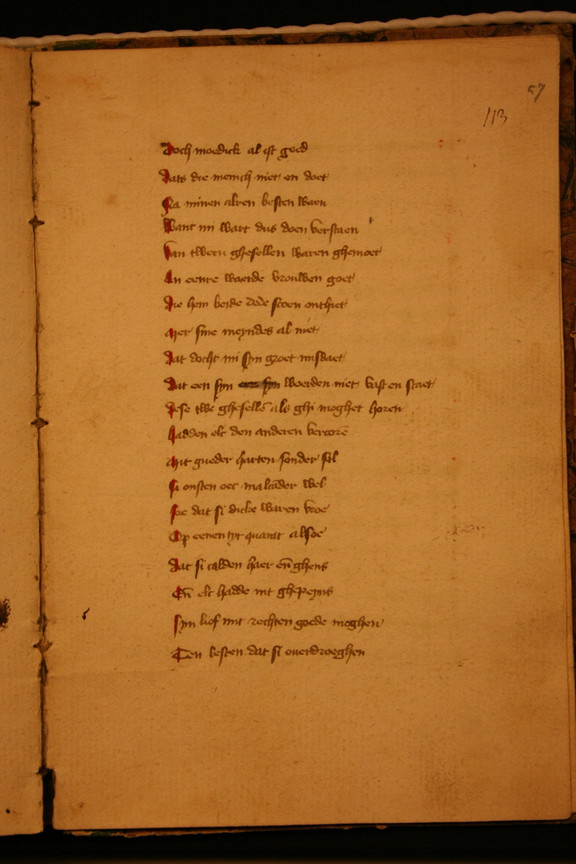 97
113
Doch moedick al ist goed
Dats die mensch niet en doet
Na minen alren besten waen
Want mi wart dus doen verstaen
Van tween ghesellen waren ghemoet
An eenre waerde vrouwen goet
Die hem beide dede scoen onthiet
Mer sine meyndes al niet
Dat docht mi syn groet misdaet
Dat een syn woerden niet vast en staet
Dese twe ghesellē als ghi moghet horen
Hadden elc den anderen vercorē
Mit gueder harten sonder fel
Si onsten oec malcāder wel
Soe dat si dicke waren vroe
Op eenen tyt quamt alsoe
Dat si calden haer eñ ghens
Eñ elc hadde int ghepeyns
Syn lief mit rechten goede moghen
Ten besten dat si ouerdroeghen